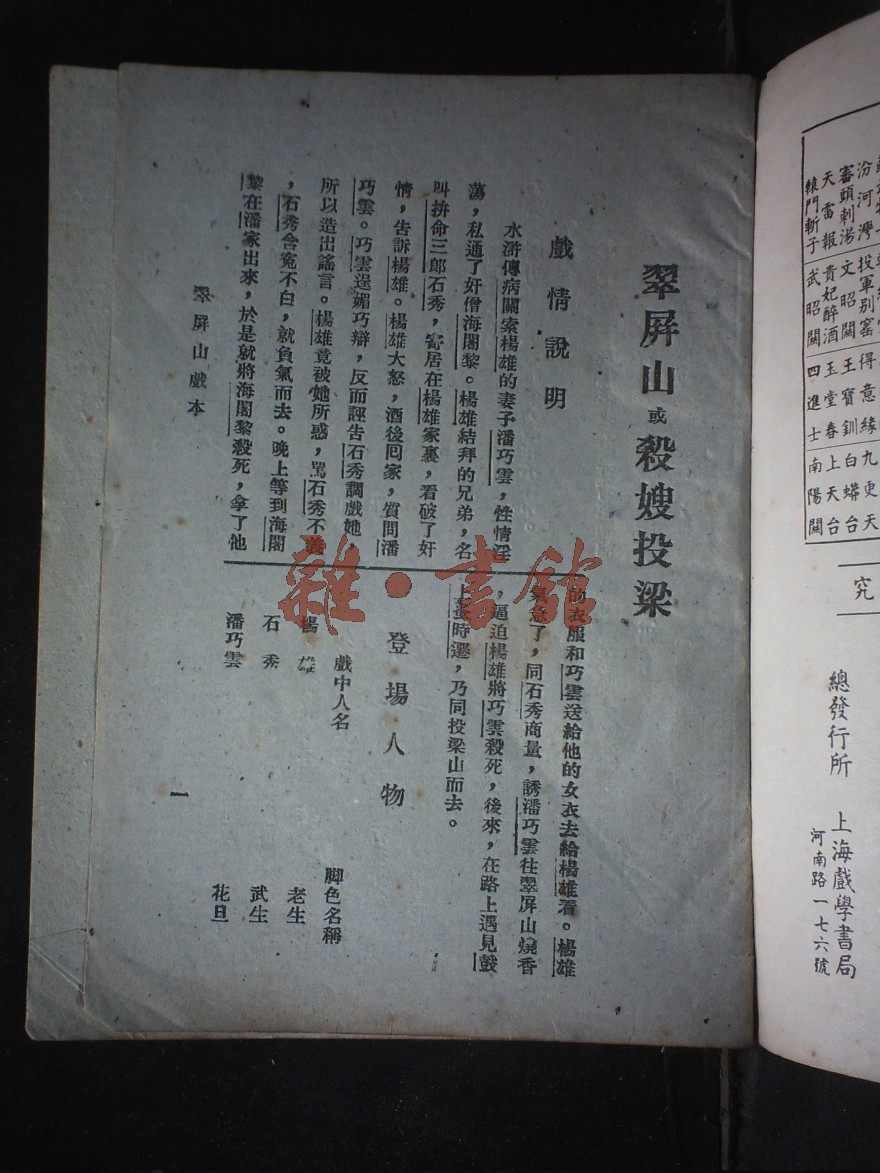 翠屏山或殺嫂投梁
戲情說明
水滸傳病關索楊雄的妻子潘巧雲，性情淫
蕩，私通了奸僧海闍黎。楊雄結拜的兄弟，名
叫拚命三郎石秀，寄居在楊雄家裏，看破了奸
情，告訴楊雄。楊雄大怒，酒後回家，質問潘
巧雲。巧雲逞媚巧辯，反而誣告石秀調戲她，
所以造出謠言。楊雄竟被她所惑，罵石秀不義
，石秀含冤不白，就負氣而去。晚上等到海闍
黎在潘家出來，於是就將海闍黎殺死，拿了他
的衣服和巧雲送給他的女衣去給楊雄看。楊雄
氣急了，同石秀商量，誘潘巧雲往翠屏山燒香
，逼迫楊雄將巧雲殺死，後來，在路上遇見鼓
上蚤時遷，乃同投梁山而去。
登場人物
戲中人名　脚色名稱
楊雄　老生
石秀　武生
潘巧雲　花旦
翠屏山戲本
一
雜·書館
汾河灣　投軍别窰　得意緣　九更天
審頭刺湯　文昭關　王寶釧　白蟒台
天雷報　貴妃醉酒　玉堂春　上天台
轅門斬子　武昭關　四進士　南陽關
究
總發行所　上海戲學書局
河南路一七六號